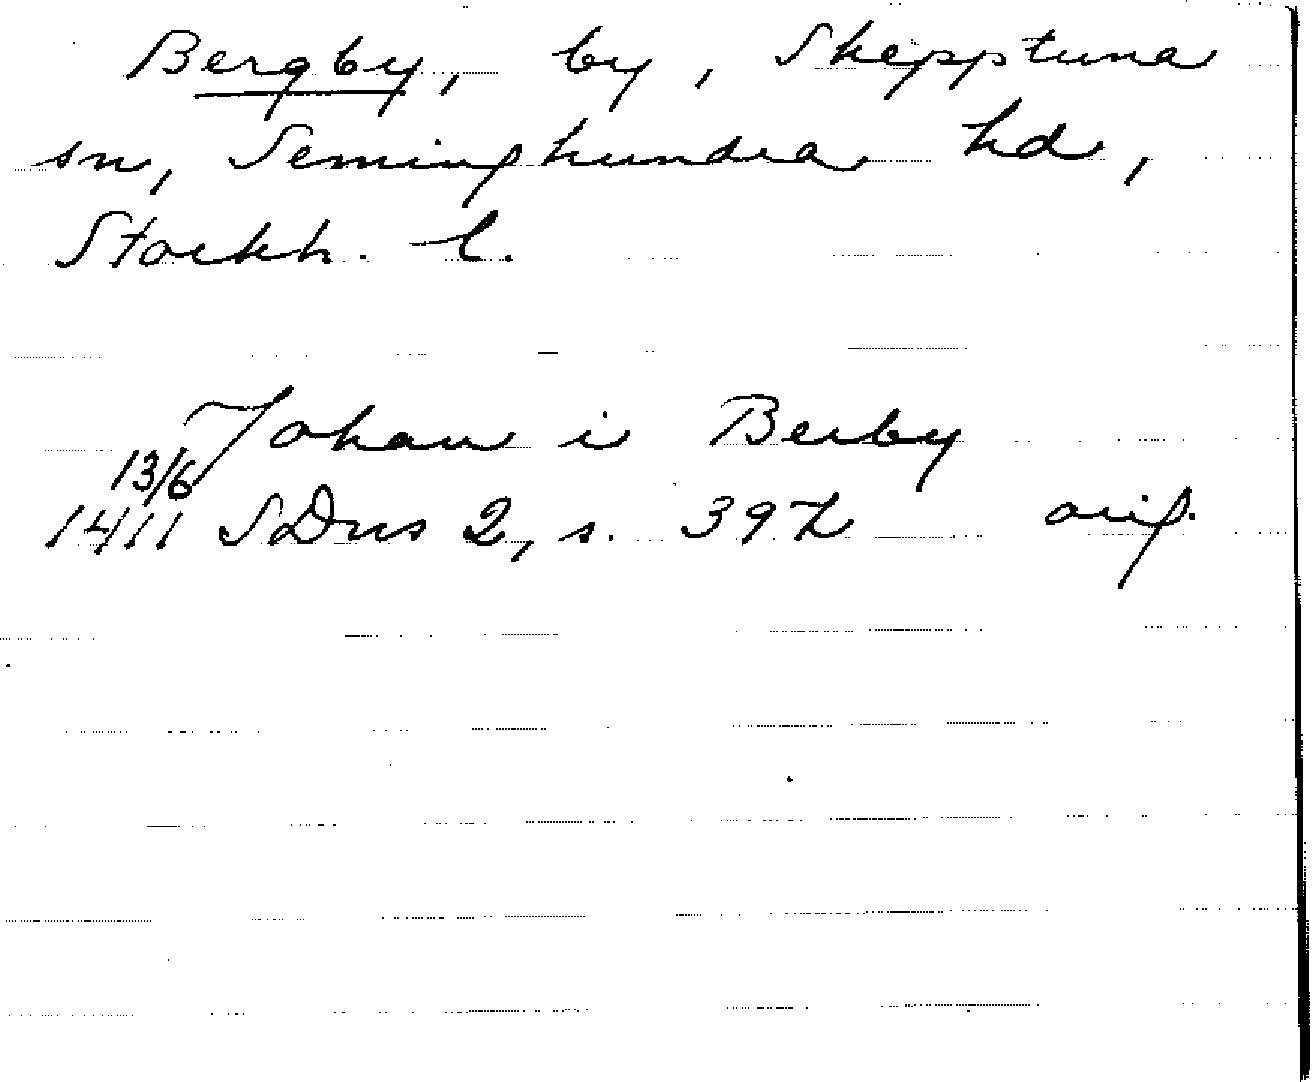 Bergby, by, Skepptuna
sn, Seminghundra hd,
Stockh. l.
Johan i Berby
13/6
1411 SDns 2, s. 392 orig.